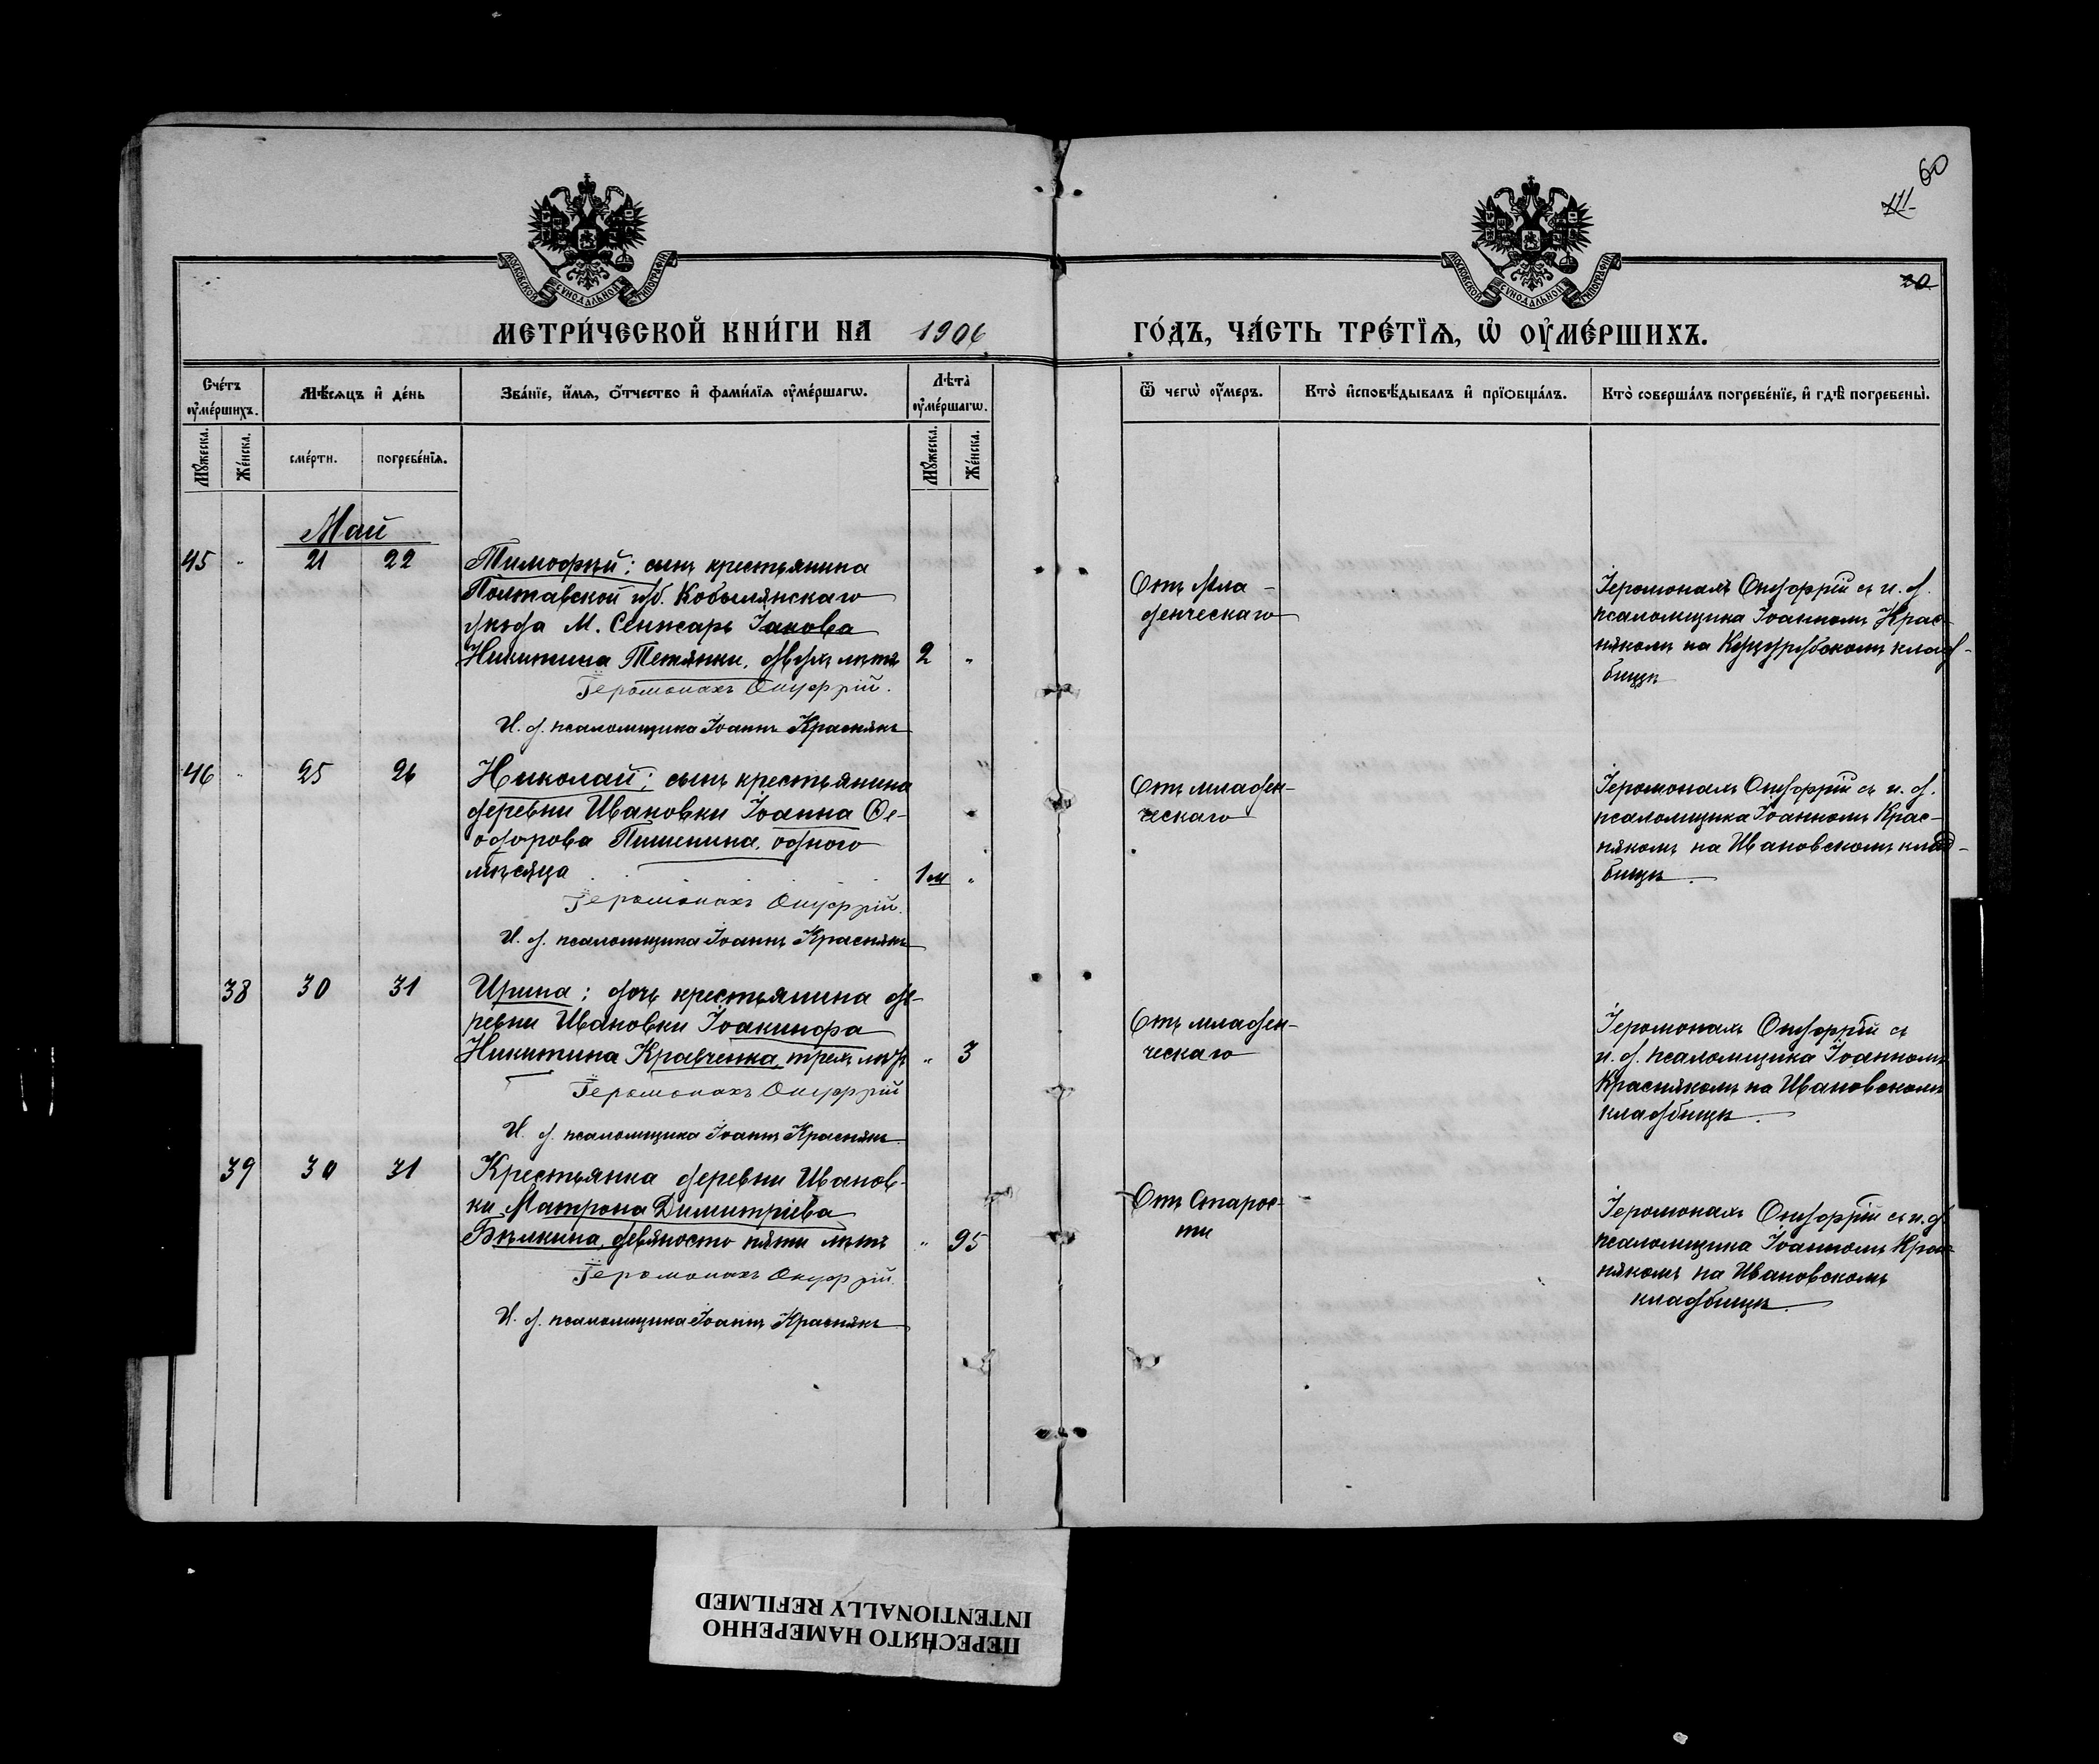 60
111
20
МОСКОВСКОЙ СѴНОДАЛЬНОЙ ТИПОГРАФІИ
МОСКОВСКОЙ СѴНОДАЛЬНОЙ ТИПОГРАФІИ
МЕТРИ́ЧЕСКОЙ КНИ́ГИ НА 1906 ГО́ДЪ, ЧА́СТЬ ТРЕ́ТЇѦ, Ѡ҆ ОУ҆МЕ́РШИХЪ.
Сче́тъ оу҆ме́ршихъ.
Мѣ́сѧцъ и҆ де́нь
Зва́нїе, и҆́мѧ, ѻ҆́тчество и҆ фами́лїѧ оу҆ме́ршагѡ.
Лѣ́та оу҆ме́ршагѡ.
Ѿ чегѡ̀ оу҆́меръ.
Кто̀ и҆сповѣ́дывалъ и҆ прїѡбща́лъ.
Кто̀ соверша́лъ погребе́нїе, и҆ гдѣ̀ погребены̀.
Мꙋ́жеска.
Же́нска.
сме́рти.
погребе́нїѧ.
Мꙋ́жеска.
Же́нска.
Май
45 " 21 22 Тимофѣй; сынъ крестьянина
Полтавской губ. Кобылянскаго
уѣзда М. Сенжаръ Іакова
Никитина Тетянки, двухъ лѣтъ 2 "
Іеромонахъ Онуфрій.
И. д. псаломщика Іоаннъ Краснякъ
Отъ Мла-
денческаго
Іеромонахъ Онуфрій съ и. д.
псаломщика Іоанномъ Крас-
някомъ на клад-
бищѣ
46 " 25 26 Николай; сынъ крестьянина
деревни Ивановки Іоанна Ѳе-
одорова Пишенина, одного
мѣсяца 1м "
Іеромонахъ Онуфрій.
И. д. псаломщика Іоаннъ Краснякъ
Отъ младен-
ческаго
Іеромонахъ Онуфрій съ и. д.
псаломщика Іоанномъ Крас-
някомъ на Ивановскомъ клад-
бищѣ.
38 30 31 Ирина; дочь крестьянина де-
ревни Ивановки Іоакинфа
Никитина Кравченка, трехъ лѣтъ " 3
Іеромонахъ Онуфрій
И. д. псаломщика Іоаннъ Краснякъ
Отъ младен-
ческаго
Іеромонахъ Онуфрій съ
и. д. псаломщика Іоанномъ
Краснякомъ на Ивановскомъ
кладбищѣ.
39 30 31 Крестьянка деревни Иванов-
ки Матрона Димитріева
Бѣлкина, девяносто пяти лѣтъ " 95
Іеромонахъ Онуфрій.
И. д. псаломщика Іоаннъ Краснякъ
Отъ Старос-
ти
Іеромонахъ Онуфрій съ и. д.
псаломщика Іоанномъ Крас-
някомъ на Ивановскомъ
кладбищѣ.
ПЕРЕСНЯТО НАМЕРЕННО
INTENTIONALLY REFILMED